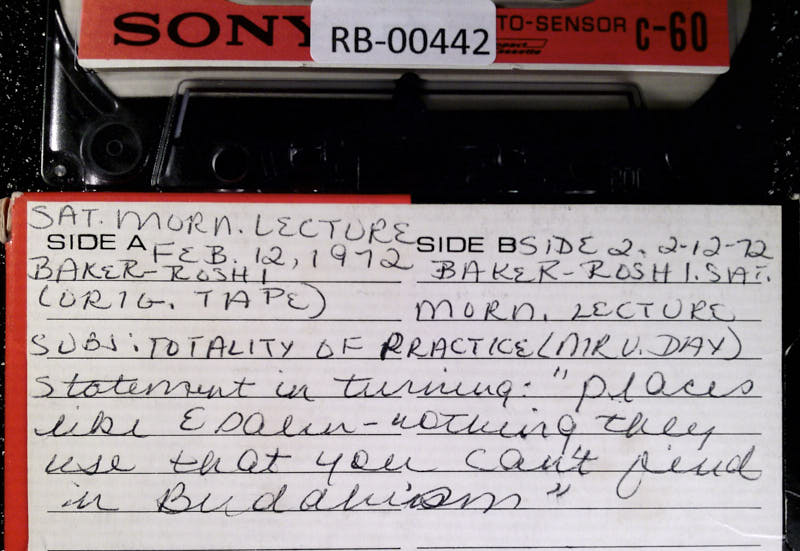 SONY TO-SENSOR C-60
RB-00442
SAT. MORN. LECTURE
SIDE A FEB. 12, 1972
BAKER-ROSHI
(ORIG. TAPE)
SIDE B SIDE 2. 2-12-72
BAKER-ROSHI. SAT.
MORN. LECTURE
SUBJ: TOTALITY OF PRACTICE (NIRV. DAY)
Statement in turning: "places
like Esalen - nothing they
use that you can't find
in Buddahism"